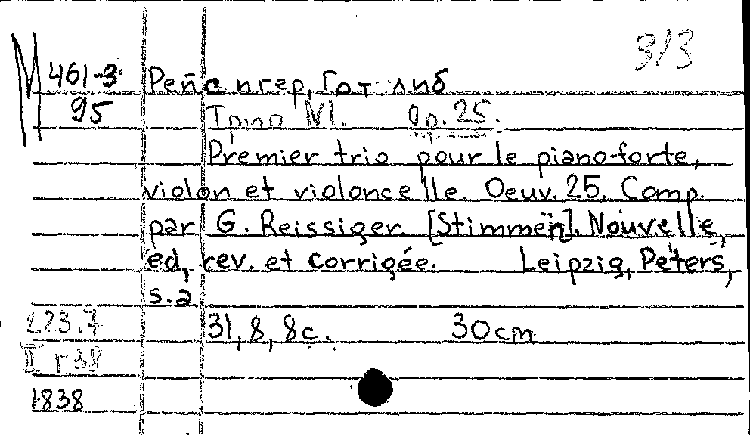 3/3
М 461-3 Рейсигер, Готлиб
95 Трио №1. Op. 25.
Premier trio pour le piano-forte,
violon et violoncelle. Oeuv. 25. Comp.
par G. Reissiger. [Stimmen]. Nouvelle,
ed, rev. et corrigée. Leipzig, Peters,
s.a
31, 8, 8с. 30cm
1838